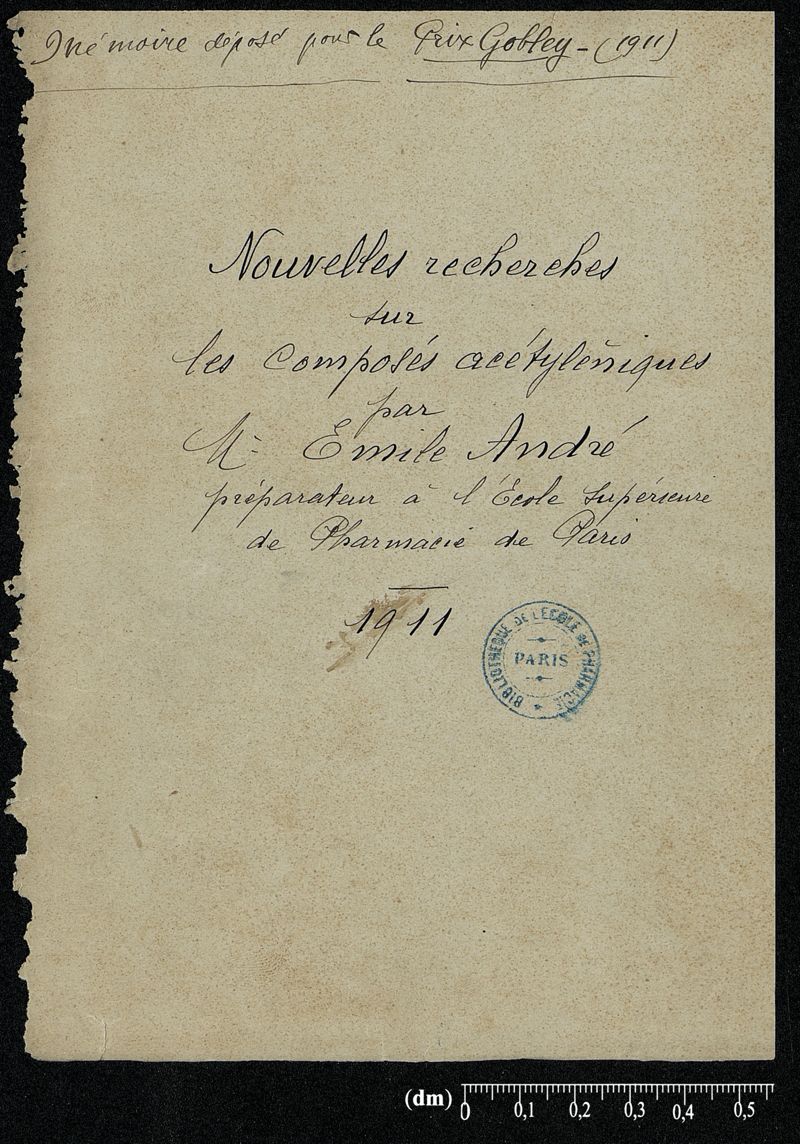 Mémoire déposé pour le Prix Gobley - (1911)
Nouvelles recherches
sur
les composés acétyléniques
par
Mr Emile André
préparateur à l'École supérieure
de Pharmacie de Paris
1911
BIBLIOTHÈQUE DE L'ECOLE DE PHARMACIE
PARIS
(dm) 0 0,1 0,2 0,3 0,4 0,5